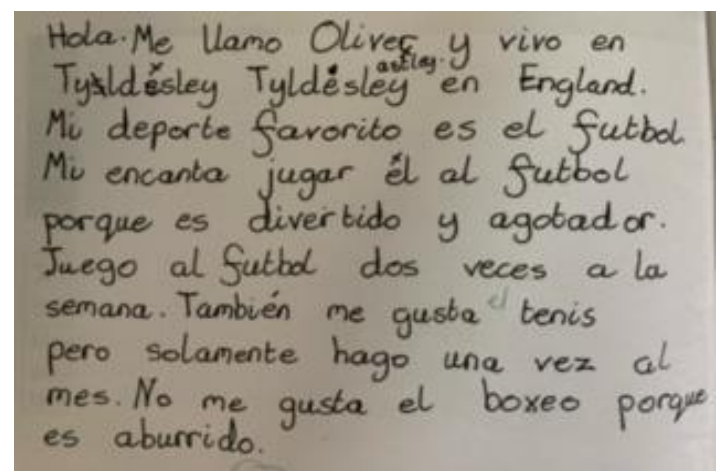 Hola. Me llamo Oliver y vivo en
Tyldesley Tyldesley astley. en England.
Mi deporte favorito es el futbol.
Mi encanta jugar él al futbol
porque es divertido y agotador.
Juego al futbol dos veces a la
semana. También me gusta el tenis
pero solamente hago una vez al
mes. No me gusta el boxeo porque
es aburrido.